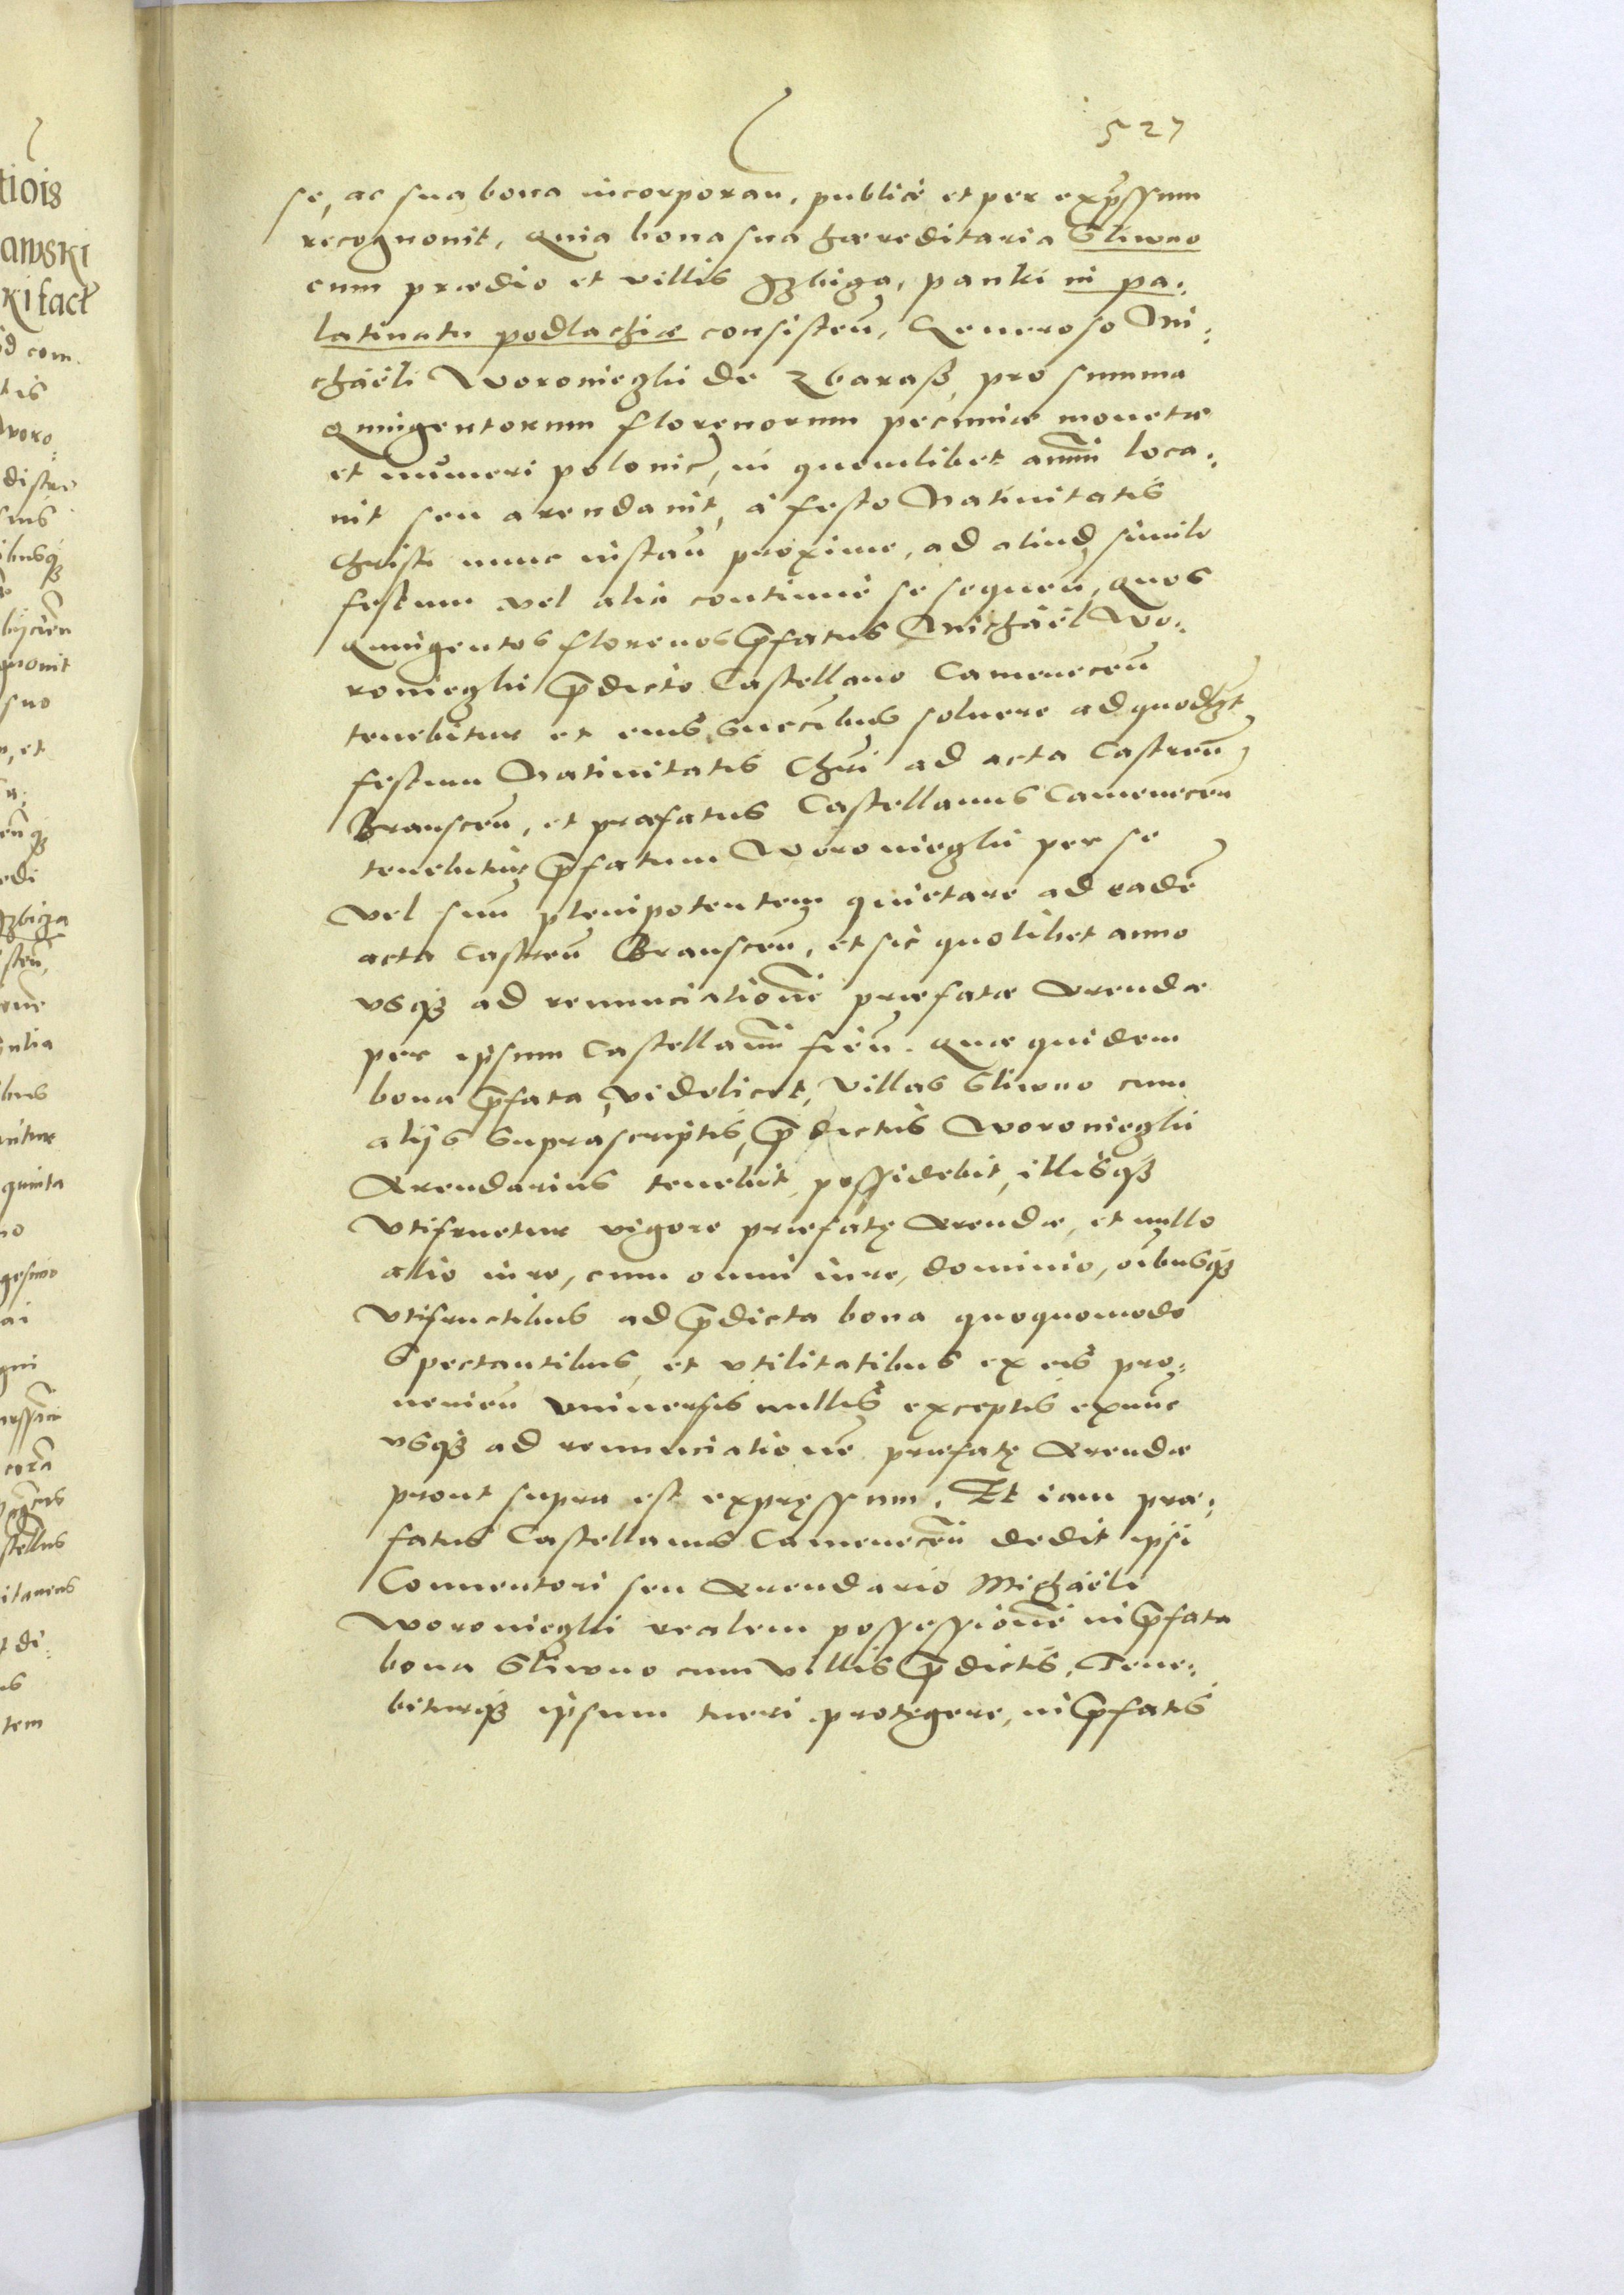 527
se, ac sua bona incorporan, publice et per expssum
recognouit, Quia bona sua haereditaria Sliwno
cum praedio et villis Izbiga, panki in pa:
latinatu podlachiae consisteñ, Generoso Mi:
chaëli Woronieczki de Zbaraß, pro summa
Quingentorum florenorum pecuniae monetae
et numeri polonic, in quemlibet annũ loca:
uit seu arendauit, à festo Natiuitatis
Christi nunc instañ proxime, ad aliud simile
festum vel alia continuè se sequeñ, quos
Quingentos florenos pfatus Michaël Wo:
ronieczki pdicto Castellano Cameneceñ
tenebitur et eius succibus soluere ad quodlẓt
festum Natiuitatis Chri ad acta Castreñ
Bransceñ, et praefatus Castellanus Cameneceñ
tenebitur pfatum Woronieczki per se
vel suũ plenipotentem quietare ad eadẽ
acta Castreñ Bransceñ, et sic quolibet anno
vsq3 ad renunciationẽ praefatae Arendae
per ipsum Castellanũ fieñ. Quae quidem
bona pfata, videlicet, Villas Sliwno cum
alijs suprascriptis, pdictus Woronieczki
Arendarius tenebit, possidebit, illisq3
Vtifruetur vigore praefatę Arendae, et nullo
alio iure, cum omni iure, dominio, oibusq3
Vtifructibus ad pdicta bona quoquomodo
Spectantibus, et vtilitatibus ex eis pro:
uenieñ vniuersis nullis exceptis exnunc
vsq3 ad renunciationẽ praefatę Arendae
prout supra est expressum. Et iam prae:
fatus Castellanus Cameneceñ dedit ipsi
Conuentori seu Arendario Michaëli
Woronieczki realem possessionẽ in pfata
bona Sliwno cum villis pdictis, Tene:
biturq3 ipsum tueri protegere, in pfatis